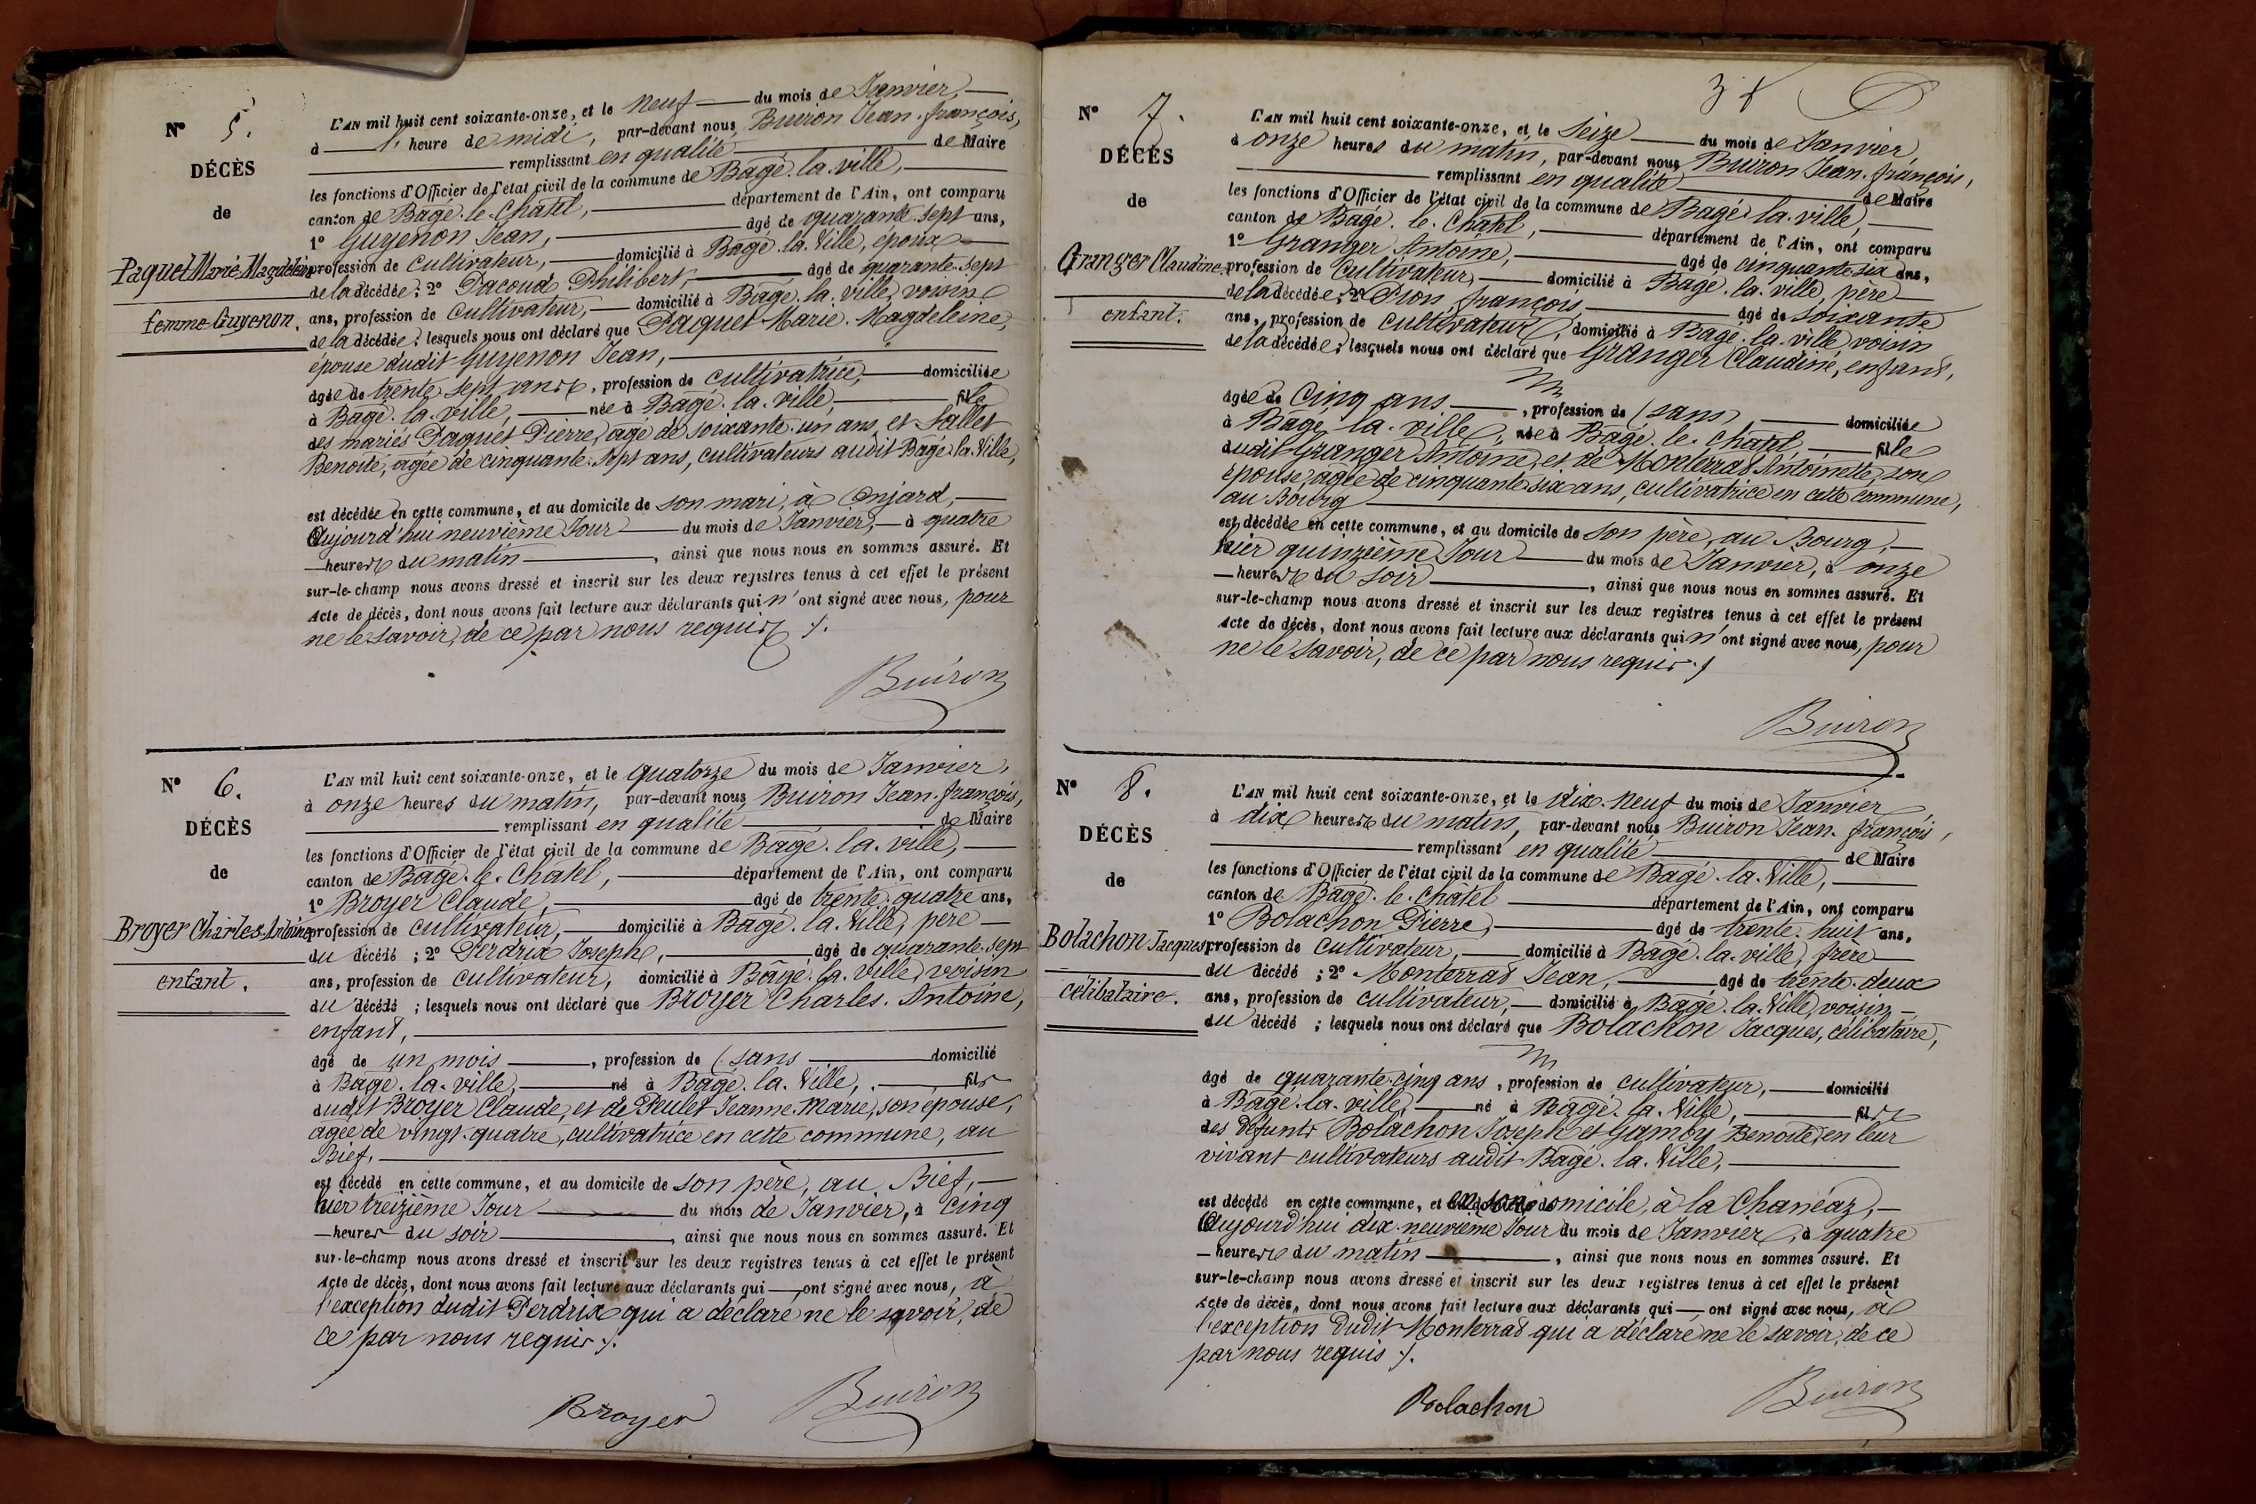 N° 5.
DÉCÈS
de
Paquet Marie Magdeleine
femme Guyenon.
L'AN mil huit cent soixante-onze, et le neuf du mois de Janvier,
à 1, heure de midi, par-devant nous Buiron Jean-françois,
remplissant en qualité de Maire
les fonctions d'Officier de l'état civil de la commune de Bagé-la-ville,
canton de Bagé-le-Chatel, département de l'Ain, ont comparu
1° Guyenon Jean, agé de quarante sept ans,
profession de cultivateur, domicilié à Bagé-la-Ville, époux
de la décédée; 2° Pacoud Philibert, agé de quarante-sept
ans, profession de cultivateur, domicilié à Bagé-la-ville, voisin
de la décédée; lesquels nous ont déclaré que Paquet Marie-Magdeleine,
épouse dudit Guyenon Jean,
agée de trente sept ans, profession de cultivatrice, domiciliée
à Bagé-la-ville, née à Bagé-la-ville, fille
des mariés Paquet Pierre, agé de soixante-un ans, et Sallet
Benoite, agée de cinquante-sept ans, cultivateurs audit Bagé-la-Ville,
est décédée en cette commune, et au domicile de son mari, à Conjard,
Aujourd'hui neuvième Jour du mois de Janvier, à quatre
heures du matin, ainsi que nous nous en sommes assuré. Et
sur-le-champ nous avons dressé et inscrit sur les deux registres tenus à cet effet le présent
Acte de décès, dont nous avons fait lecture aux déclarants qui n'ont signé avec nous, pour
ne le savoir, de ce par nous requis ./.
Buiron
N° 6.
DÉCÈS
de
Broyer Charles-Antoine
enfant.
L'AN mil huit cent soixante-onze, et le quatorze du mois de Janvier,
à onze heures du matin, par-devant nous Buiron Jean-françois,
remplissant en qualité de Maire
les fonctions d'Officier de l'état civil de la commune de Bagé-la-ville,
canton de Bagé-le-Chatel, département de l'Ain, ont comparu
1° Broyer Claude, agé de trente-quatre ans,
profession de cultivateur, domicilié à Bagé-la-Ville, père
du décédé; 2° Perdrix Joseph, agé de quarante-sept
ans, profession de cultivateur, domicilié à Bâgé-la-Ville, voisin
du décédé; lesquels nous ont déclaré que Broyer Charles-Antoine,
enfant,
agé de un mois, profession de (sans domicilié
à Bagé-la-ville, né à Bagé-la-Ville, fils
dudit Broyer Claude, et de Peulet Jeanne-Marie, son épouse,
agée de vingt-quatre, cultivatrice en cette commune, au
Bief,
est décédé en cette commune, et au domicile de son père, au Bief,
hier treizième Jour du mois de Janvier, à cinq
heures du soir, ainsi que nous nous en sommes assuré. Et
sur-le-champ nous avons dressé et inscrit sur les deux registres tenus à cet effet le présent
Acte de décès, dont nous avons fait lecture aux déclarants qui ont signé avec nous, à
l'exception dudit Perdrix qui a déclaré ne le savoir, de
ce par nous requis ./.
Broyer Buiron
3
N° 7.
DÉCÈS
de
Granger Claudine
enfant.
L'AN mil huit cent soixante-onze, et le Seize du mois de Janvier
à onze heures du matin, par-devant nous Buiron Jean-françois,
remplissant en qualité de Maire
les fonctions d'Officier de l'état civil de la commune de Bagé-la-ville,
canton de Bagé-le-Chatel, département de l'Ain, ont comparu
1° Granger Antoine, agé de cinquante six ans,
profession de Cultivateur, domicilié à Bagé-la-ville, père
de la décédée; 2° Pion françois agé de soixante
ans, profession de cultivateur, domicilié à Bagé-la-ville voisin
de la décédée; lesquels nous ont déclaré que Granger Claudine, enfant,
agée de Cinq ans, profession de (sans) domiciliée
à Bagé-la-ville, née à Bagé-le-Chatel, fille
dudit Granger Antoine, et de Monterrad Antoinette, son
épouse, agée de cinquante six ans, cultivatrice en cette commune,
au Bourg
est décédée en cette commune, et au domicile de son père, au Bourg,
hier quinzième Jour du mois de Janvier, à onze
heures du soir, ainsi que nous nous en sommes assuré. Et
sur-le-champ nous avons dressé et inscrit sur les deux registres tenus à cet effet le présent
Acte de décès, dont nous avons fait lecture aux déclarants qui n'ont signé avec nous, pour
ne le savoir, de ce par nous requis ./
Buiron
N° 8.
DÉCÈS
de
Bolachon Jacques
célibataire.
L'AN mil huit cent soixante-onze, et le dix-neuf du mois de Janvier
à dix heures du matin, par-devant nous Buiron Jean-françois,
remplissant en qualité de Maire
les fonctions d'Officier de l'état civil de la commune de Bagé-la-Ville,
canton de Bagé-le-Châtel département de l'Ain, ont comparu
1° Bolachon Pierre, agé de trente-huit ans,
profession de cultivateur, domicilié à Bagé-la-ville, frère
du décédé; 2° Monterrad Jean, agé de trente-deux
ans, profession de cultivateur, domicilié à Bagé-la-Ville, voisin
du décédé; lesquels nous ont déclaré que Bolachon Jacques, célibataire,
agé de quarante-cinq ans, profession de cultivateur, domicilié
à Bagé-la-ville, né à Bagé-la-Ville, fils
des défunts Bolachon Joseph et Gamby Benoite, en leur
vivant cultivateurs audit Bagé-la-Ville,
est décédé en cette commune, et en son domicile, à la Chanéaz,
Aujourd'hui dix-neuvième Jour du mois de Janvier, à quatre
heures du matin, ainsi que nous nous en sommes assuré. Et
sur-le-champ nous avons dressé et inscrit sur les deux registres tenus à cet effet le présent
Acte de décès, dont nous avons fait lecture aux déclarants qui ont signé avec nous, à
l'exception dudit Monterrad qui a déclaré ne le savoir, de ce
par nous requis ./.
Bolachon Buiron